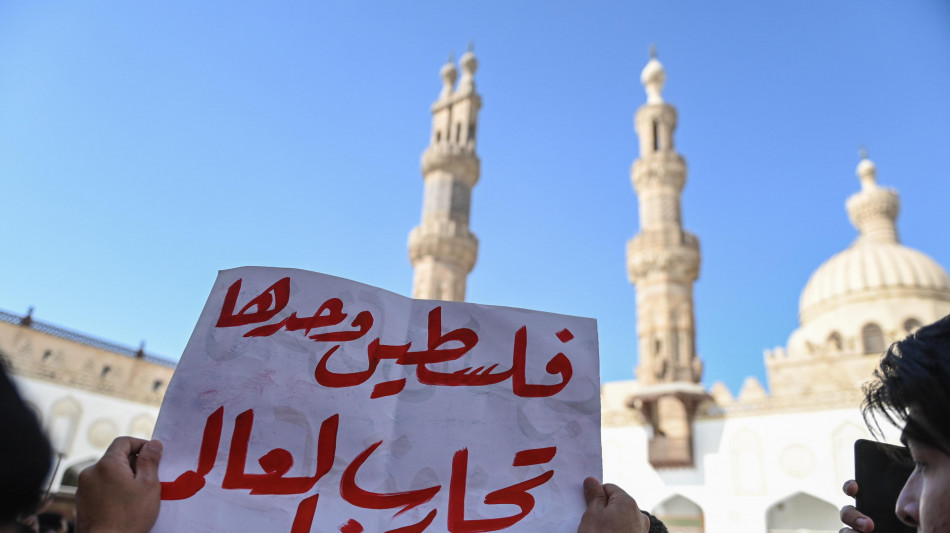 فلسطين وحدها
تحارب العالم